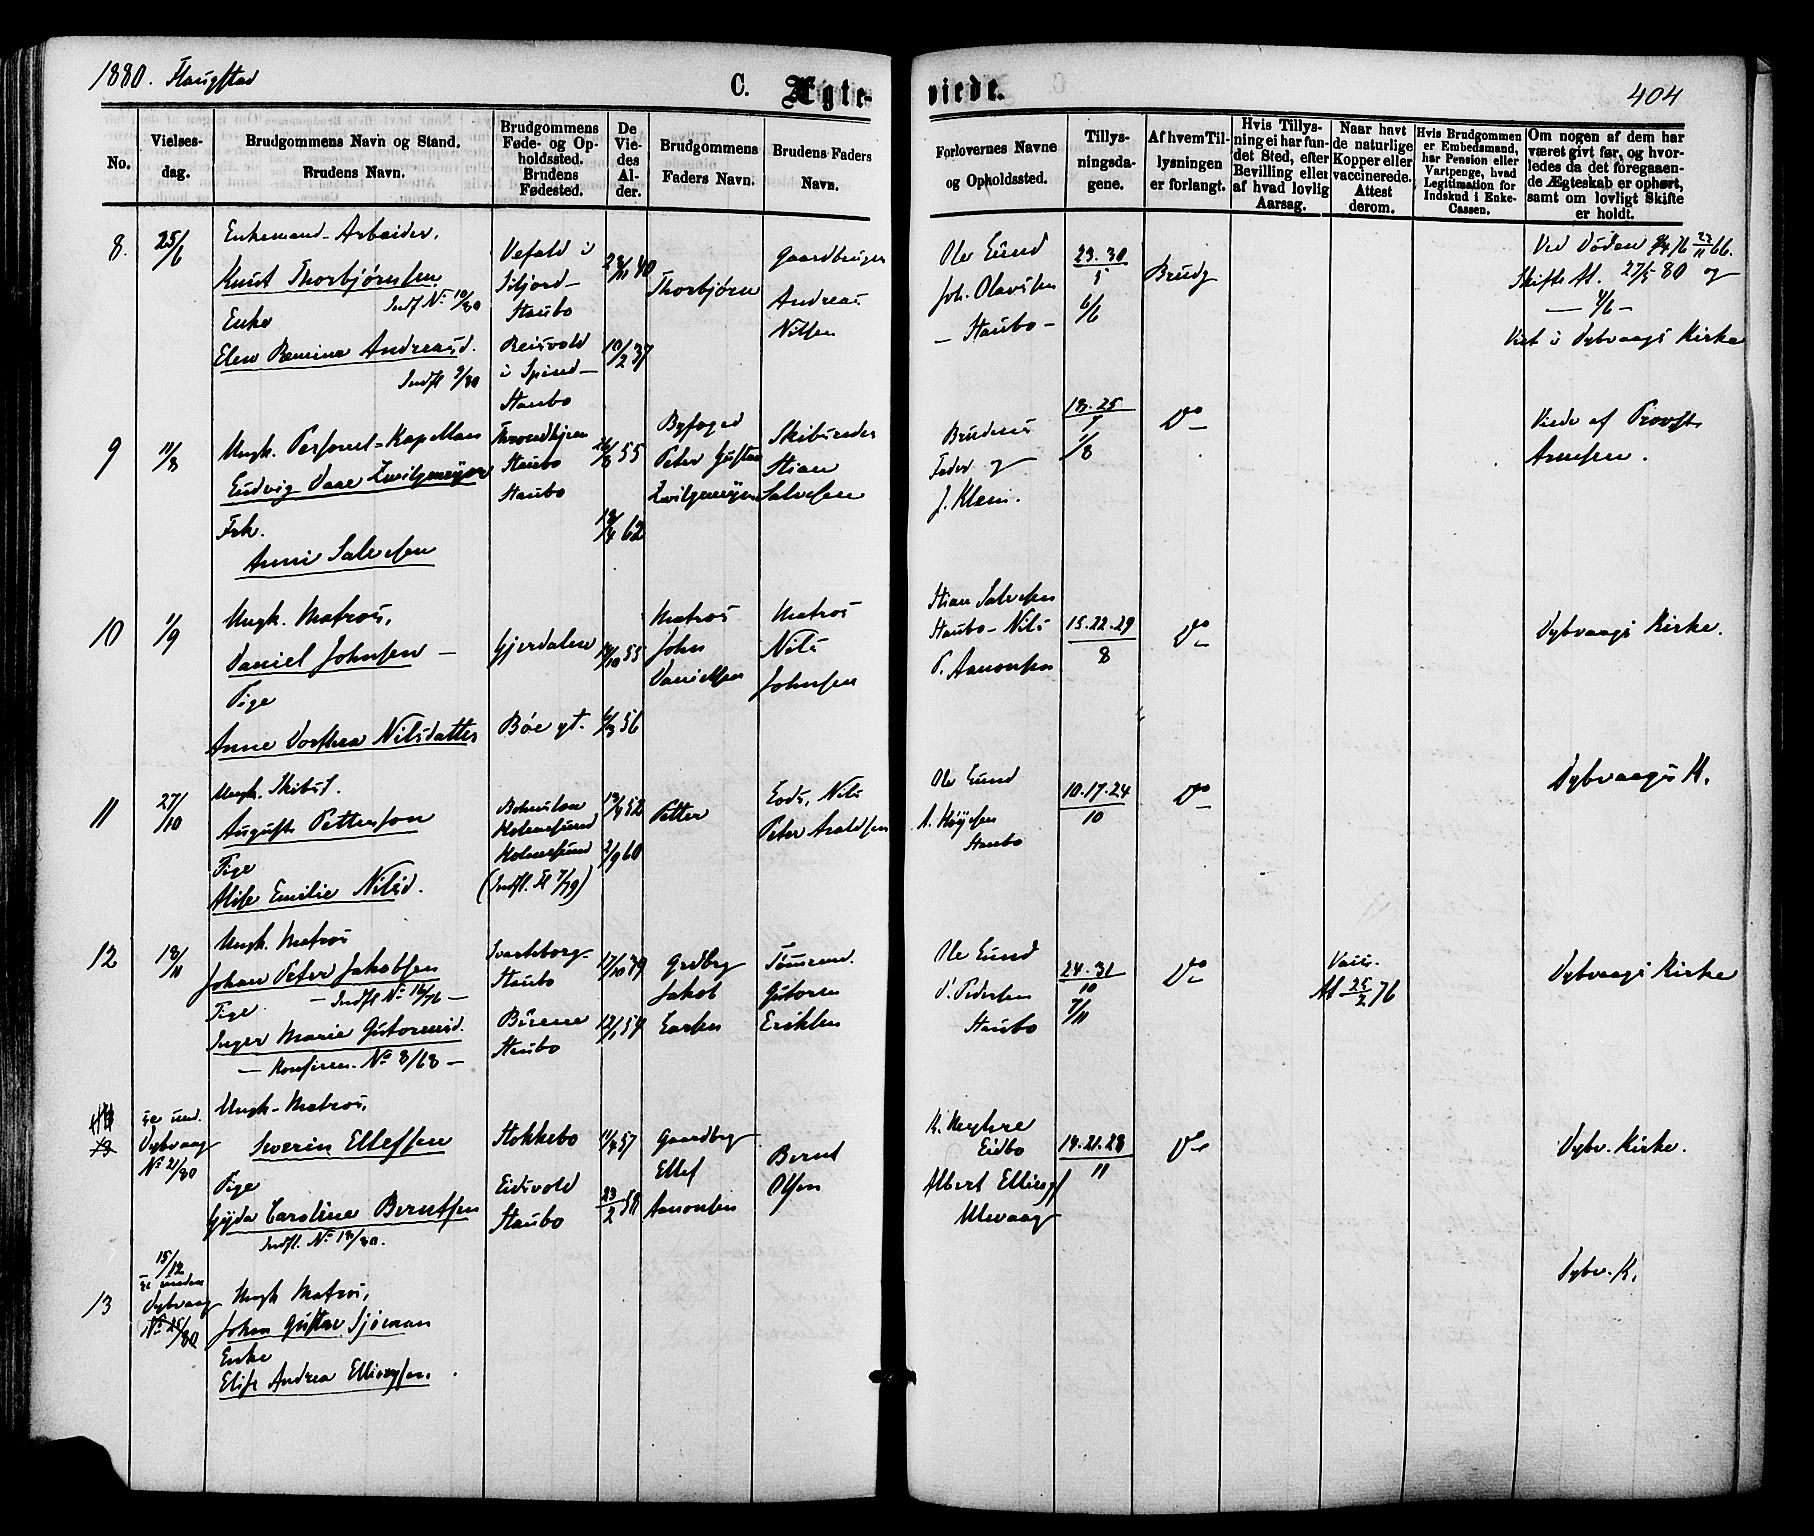 1880. Flangstad
C. Ægte-
viede.
404
No.
Vielses-
dag.
Brudgommens Navn og Stand.
Brudens Navn.
Brudgommens
Føde- og Op-
holdssted.
Brudens
Fødested.
De
Vie-
des
Al-
der.
Brudgommens
Faders Navn.
Brudens Faders
Navn.
Forlovernes Navne
og Opholdssted.
Tillys-
ningsda-
gene.
Af hvem Til-
lysningen
er forlangt.
Hvis Tillys-
ning ei har fun-
det Sted, efter
Bevilling eller
af hvad lovlig
Aarsag.
Naar havt
de naturlige
Kopper eller
vaccinerede.
Attest
derom.
Hvis Brudgommen
er Embedsmand,
har Pension eller
Vartpenge, hvad
Legitimation for
Indskud i Enke-
Cassen.
Om nogen af dem har
været givt før, og hvor-
ledes da det foregaaen-
de Ægteskab er ophørt,
samt om lovligt Skifte
er holdt.
8.
25/6
Enkemand-Arbeider,
Knut Thorbjørnsen
Indf. No 10/80
Enke
Elen Andreasd.
Indfl 9/80
Vefald i
Siljord-
Staubo
i Spind-
Staubo
23/11 40
10/2 37
Thorbjørn
Gaardbruger
Andreas
Nilsen
Ole Lund
Joh. Olavsen
- Staubo -
23. 30
5
6/6
Brudg
Ved Døden 9/4 76 23/11 66.
Skifte At. 27/5 80 og
4/6 -
Viet i Dybvaags Kirke
9
11/8
Ungk. Personel-Kapellan
Ludvig Daae Zwilgmeyer
Frk.
Anni Salvesen
Throndhjem
Staubo
Staubo
26/8 55
18/4 62
Byfoged
Peter Gustav
Zwilgmeyer
Skibsreder
Stian
Salvesen
Brudens
Fader og
J. Klem.
18. 25
7
1/8
Do
Viede af Provst
Arnesen.
10
1/9
Ungk. Matros,
Daniel Johnsen -
Pige
Anne Dorthea Nilsdatter
Gjerdalen
Bøe gt.
14/10 55
6/3 56
Matros
John
Danielsen
Matros
Nils
Johnsen
Stian Salvesen
Staubo - Nils
P. Aanonsen
15. 22. 29
8
Do
Dybvaags Kirke.
11
27/10
Ungk. Skibst.
August Petterson
Pige
Alise Emilie Nilsd.
Bohuslan
Holmesund
Holmesund
(Indfl. fl 7/79)
19/9 52
2/9 60
Petter
Lods, Nils
Peter Araldsen
Ole Lund
A. Høyesen
Staubo
10. 17. 24
10
Do
Dybvaags K.
12
18/11
Ungk. Matros
Johan Peter Jakobsen
- Indfl No 16/76 -
Pige
Inger Marie Gutormsd.
- Konfirm. No 8/68 -
Svarteborg-
Staubo
Staubo
17/10 49
12/1 54
Grdbrg
Jakob
Larsen
Tømrmd.
Gutorm
Eriksen
Ole Lund
O. Pedersen
Staubo
24. 31
10
7/11
Do
Vacc.
At 25/2 76
Dybvaags Kirke
se und.
Dybvaag
No 21/80
Ungk - Matros,
Severin Ellefsen
Pige
Gyda Caroline Berntsen
Indfl. No 18/80.
Stokkebo
Eidsvold
Staubo
11/4 57
23/2 58
Gaardbrg
Ellef
Aanonsen
Bernt
Olsen
K. Myhre
Eidbo
Albert Ellingsf
Ulevaag
14. 21. 28
11
Do
Dybv. Kirke.
15/12
13
se under
Dybvaag
No 25/80
Ungk Matros,
Johan Gustav Sjøman
Enke
Elise Andrea Ellingsen.
Dybv. K.